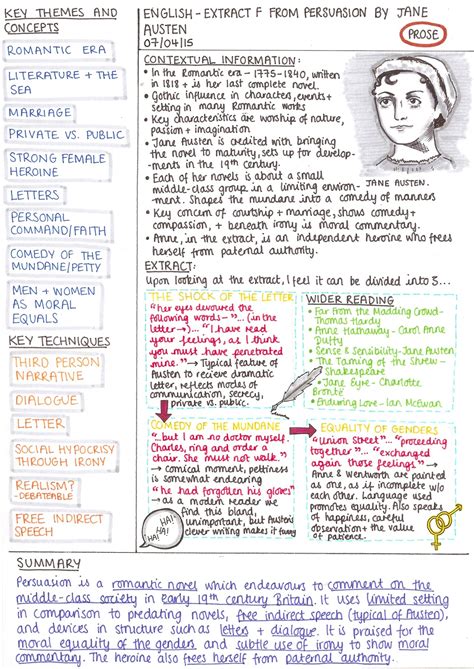 KEY THEMES AND
CONCEPTS
ROMANTIC ERA
LITERATURE + THE
SEA
MARRIAGE
PRIVATE VS. PUBLIC
STRONG FEMALE
HEROINE
LETTERS
PERSONAL
COMMAND/FAITH
COMEDY OF THE
MUNDANE/PETTY
MEN + WOMEN
AS MORAL
EQUALS
KEY TECHNIQUES
THIRD PERSON
NARRATIVE
DIALOGUE
LETTER
SOCIAL HYPOCRISY
THROUGH IRONY
REALISM?
-DEBATEABLE
FREE INDIRECT
SPEECH
ENGLISH - EXTRACT F FROM PERSUASION BY JANE
AUSTEN
07/04/15
PROSE
CONTEXTUAL INFORMATION:
• In the Romantic era - 1775-1840, written
in 1818 + is her last complete novel.
• Gothic influence in characters, events +
setting in many Romantic works
• Key characteristics are worship of nature,
passion + imagination
• Jane Austen is credited with bringing
the novel to maturity, sets up for develop-
ments in the 19th Century.
• Each of her novels is about a small
middle-class group in a limiting environ-
ment. Shapes the mundane into a comedy of manners
• Key concern of courtship + marriage, shows comedy +
compassion, + beneath irony is moral commentary.
• Anne, in the extract, is an independent heroine who frees
herself from paternal authority.
JANE AUSTEN.
EXTRACT:
Upon looking at the extract, I feel it can be divided into 3...
THE SHOCK OF THE LETTER
"her eyes devoured the
following words-"...(in the
letter→)..."I have read
your feelings, as I think
you must have penetrated
mine." → Typical feature of
Austen to recieve dramatic
letter, reflects modes of
communication, secrecy,
private vs. public.
WIDER READING
• Far From the Madding Crowd-
Thomas Hardy
• Anne Hathaway - Carol Anne
Duffy
• Sense & Sensibility-Jane Austen
• The Taming of the Shrew -
Shakespeare
• Jane Eyre - Charlotte
Brontë
• Enduring Love - Ian McEwan
COMEDY OF THE MUNDANE
"...but I am no doctor myself.
Charles, ring and order a
chair. She must not walk."
→ comical moment, pettiness
is somewhat endearing
"he had forgotten his gloves"
→ as a modern reader we
find this bland,
unimportant, but Austen's
clever writing makes it funny
HA!
HA!
HA!
EQUALITY OF GENDERS
"Union Street"... "proceeding
together"... "exchanged
again those feelings" →
Anne & Wentworth are painted
as one, as if incomplete w/o
each other. Language used
promotes equality. Also speaks
of happiness, careful
observation + the value
of patience.
SUMMARY
Persuasion is a romantic novel which endeavours to comment on the
middle-class society in early 19th century Britain. It uses limited setting
in comparison to predating novels, free indirect speech (typical of Austen),
and devices in structure such as letters + dialogue. It is praised for the
moral equality of the genders and subtle use of irony to show moral
commentary. The heroine also frees herself from paternal authority.